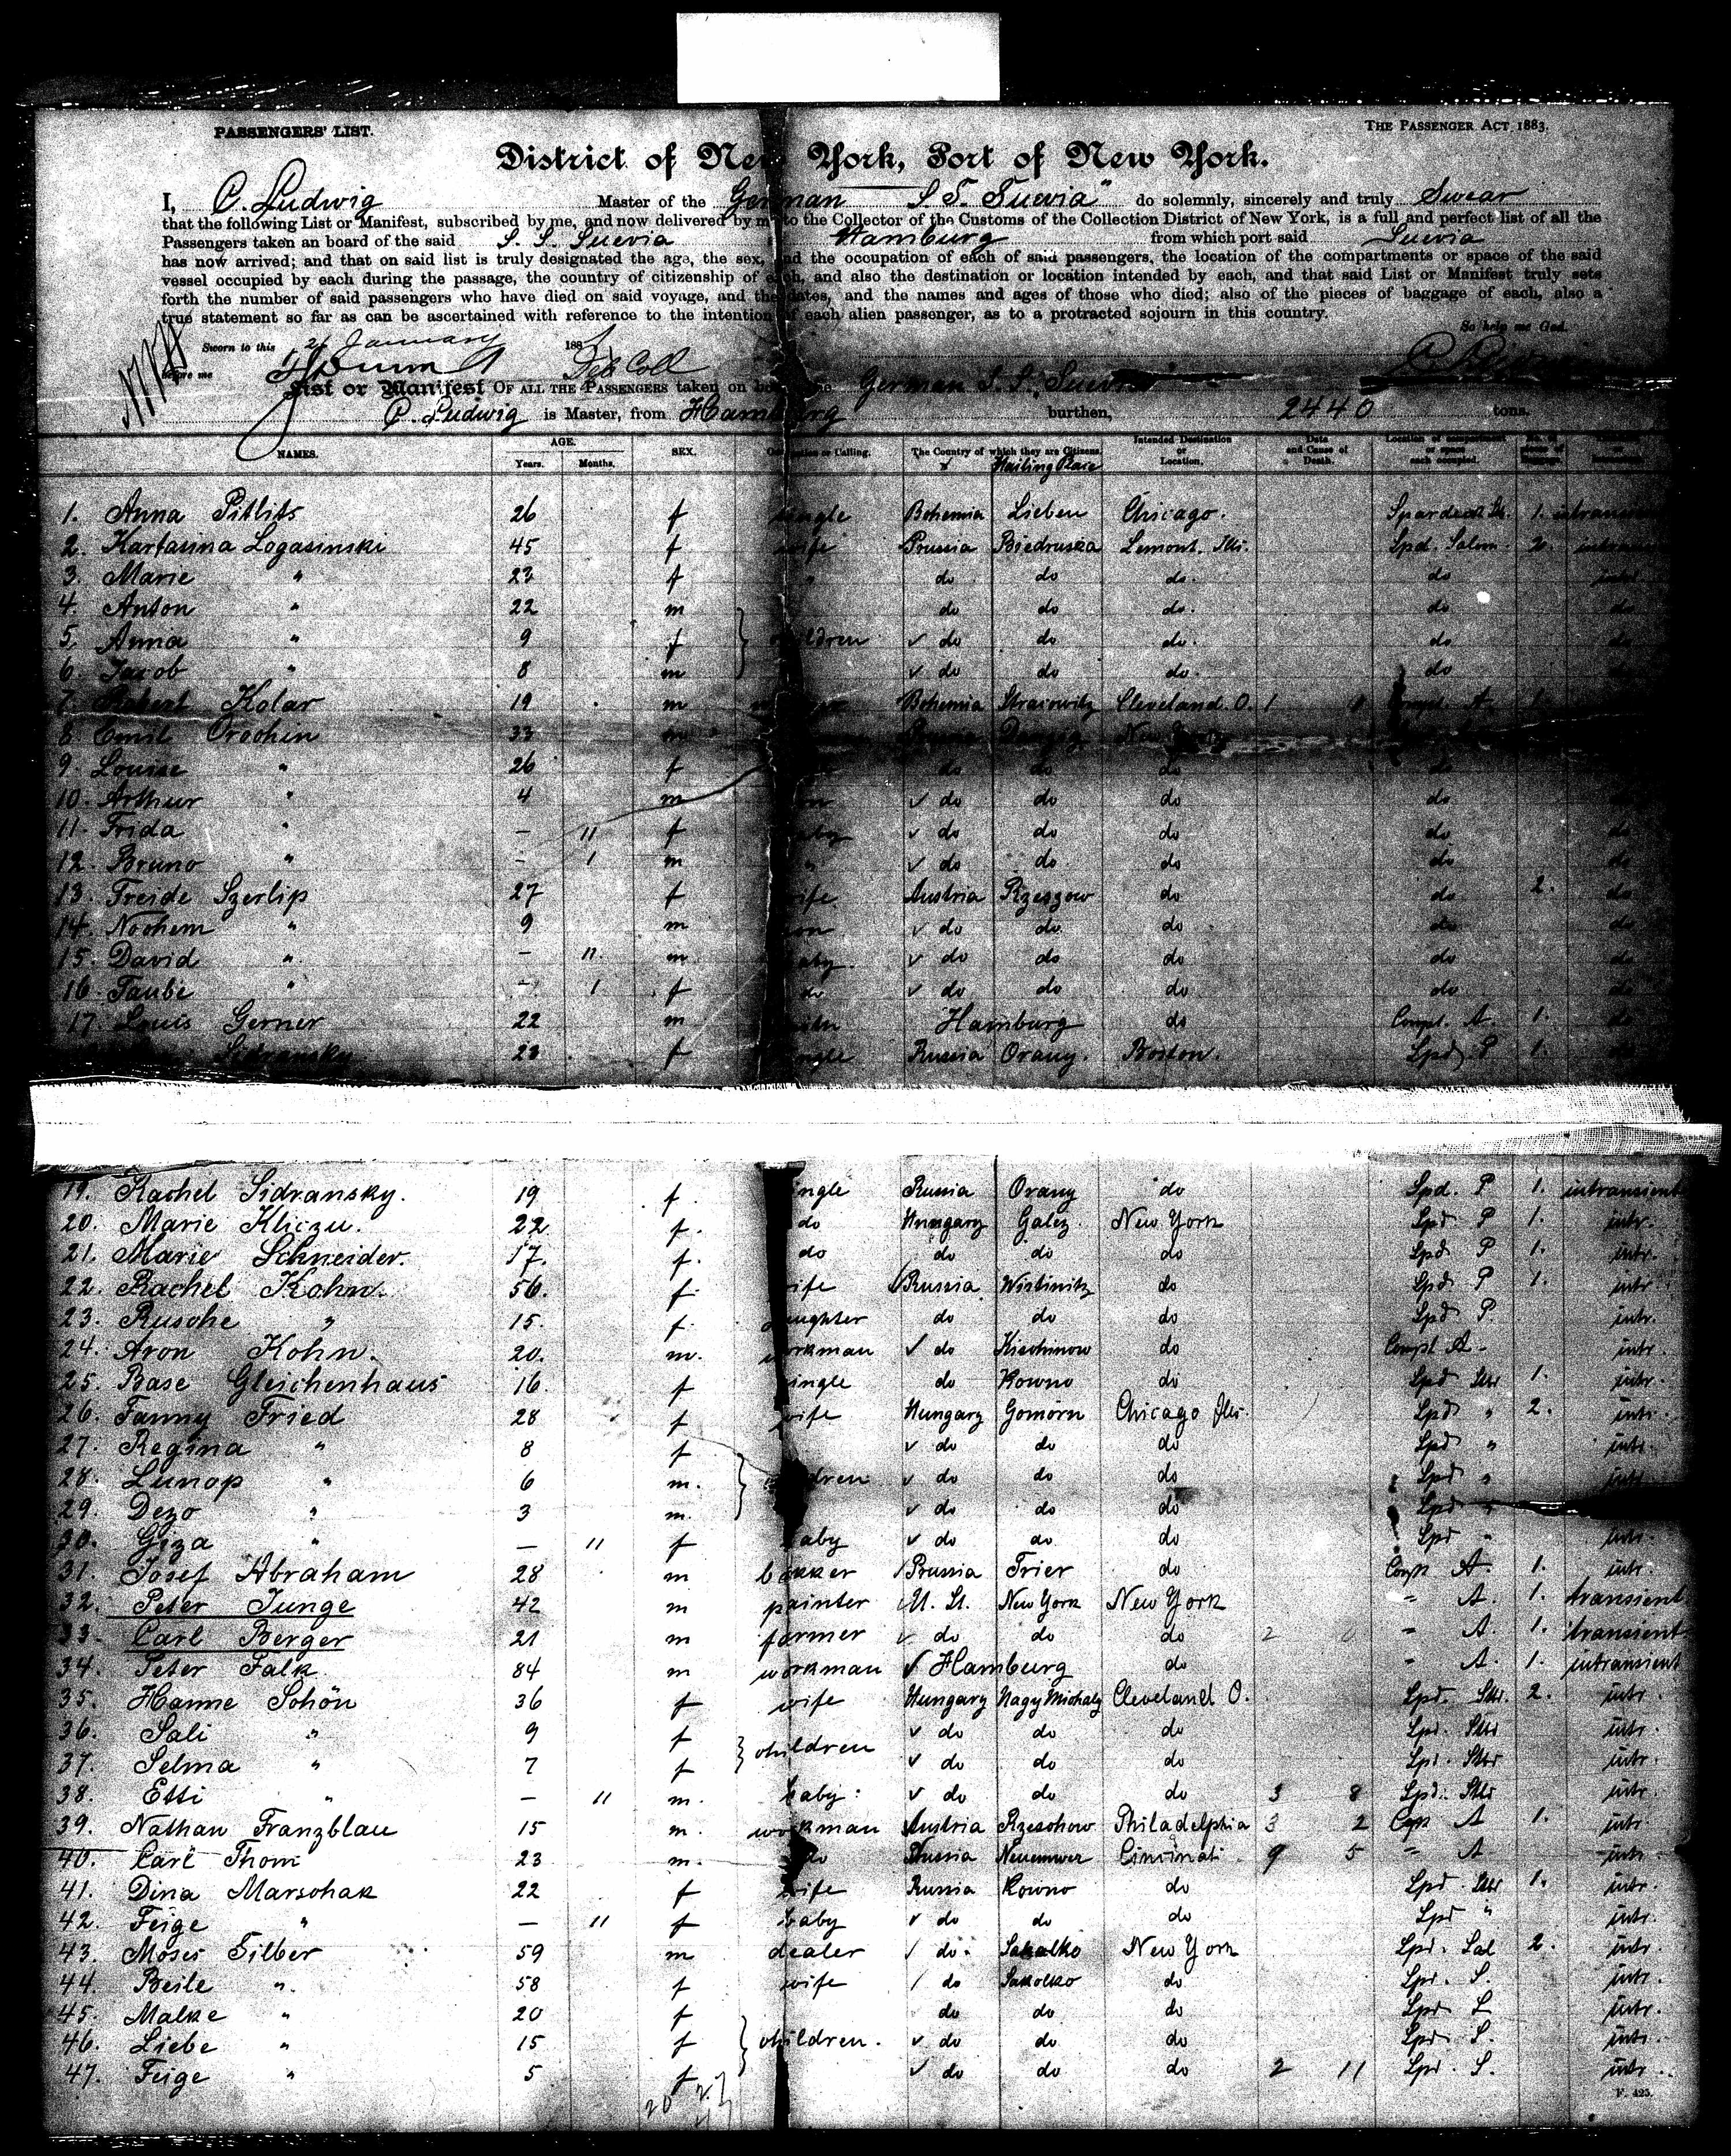 PASSENGERS' LIST.
THE PASSENGER ACT 1883.
District of New York, Port of New York.
I, C. Ludwig Master of the German S.S. Suevia" do solemnly, sincerely and truly Swear
that the following List or Manifest, subscribed by me, and now delivered by me to the Collector of the Customs of the Collection District of New York, is a full and perfect list of all the
Passengers taken an board of the said S. S. Suevia Hamburg from which port said Suevia
has now arrived; and that on said list is truly designated the age, the sex, and the occupation of each of said passengers, the location of the compartments or space of the said
vessel occupied by each during the passage, the country of citizenship of each, and also the destination or location intended by each, and that said List or Manifest truly sets
forth the number of said passengers who have died on said voyage, and the dates, and the names and ages of those who died; also of the pieces of baggage of each, also a
true statement so far as can be ascertained with reference to the intention of each alien passenger, as to a protracted sojourn in this country.
So help me God.
Sworn to this January 188
before me Deb Coll
List or Manifest OF ALL THE PASSENGERS taken on board the German S. S. Suevia
C. Ludwig is Master, from Hamburg burthen, 2440 tons.
NAMES. AGE. Years. Months. SEX. Occupation or Calling. The Country of which they are Citizens. Hailing Place Intended Destination or Location. Date and Cause of Death. Location of compartment or space each occupied.
1. Anna Pitlits 26 f single Bohemia Lieben Chicago. 1.
2. Karfasina Logasinski 45 f wife Prussia Biedruska Lemont. Ills. Spd. Salom. 2.
3. Marie " 23 f " do do do. do
4. Anton " 22 m do do do. do do
5. Anna " 9 f children ✓ do do do. do do
6. Jacob " 8 m ✓ do do do. do do
7. Robert Kolar 19 m Bohemia Straiowitz Cleveland. O. 1 Compt. A. 1.
8 Emil Orochin 33 m Danzig New York
9. Louise " 26 f do do do do
10. Arthur " 4 m son ✓ do do do do do
11. Frida " — 11 f baby ✓ do do do do do
12. Bruno " — 1 m " ✓ do do do do do
13. Freide Szerlip 27 f wife Austria Rzeszow do do 2. do
14. Nochem " 9 m son ✓ do do. do do do
15. David " — 11. m baby. ✓ do do do do do
16. Taube " — 1. f do ✓ do do do do do
17. Louis Gerner 22 m Hamburg do Compt. A. 1. do
Sidransky 23 f single Russia Orany. Boston. Spd. P 1. do
19. Rachel Sidransky. 19 f. single Russia Orany do Spd. P 1. intransient
20. Marie Kliczu. 22 f. do Hungary Galez New York Spd P 1. intr.
21. Marie Schneider. 17. f. do do do do Spd P 1. intr.
22. Rachel Kohn. 56. f. wife Russia. Wistinitz do Spd P 1. intr
23. Rusche " 15. f. daughter do do do Spd P. intr.
24. Aron Kohn. 20. m. workman ✓ do Kischinow do Compt A - intr.
25. Base Gleichenhaus 16. f single do Kowno do Spd Str 1. intr.
26. Fanny Fried 28 f wife Hungary Gomörn Chicago Ills. Spd " 2. intr.
27. Regina " 8 f ✓ do do do Spd " intr.
28. Lunop " 6 m. children ✓ do do do Spd " intr
29. Dezo " 3 m. ✓ do do do Spd "
30. Giza " — 11 f baby ✓ do do do Spd " intr.
31. Josef Abraham 28 m bakker Prussia Trier do Comp A. 1. intr.
32. Peter Junge 42 m painter U. St. New York New York " A. 1. transient
33. Carl Berger 21 m farmer ✓ do do do 2 " A. 1. transient
34. Peter Falk 84 m workman ✓ Hamburg do " A. 1. intransient
35. Hanne Schön 36 f wife Hungary Nagy Michaly Cleveland O. Spd. Str. 2. intr.
36. Sali " 9 f children ✓ do do do Spd. Str intr.
37. Selma " 7 f ✓ do do do Spd. Str intr.
38. Etti " — 11 m. baby. ✓ do do do 3 8 Spd. Str intr.
39. Nathan Franzblau 15 m. workman Austria Rzeschow Philadelphia 3 2 Cop A 1. intr.
40. Carl Thom 23 m. do Cincinati 9 5 " A intr.
41. Dina Marschak 22 f wife Russia Kowno do Spd. Str 1. intr.
42. Feige " — 11 f baby ✓ do do do Spd " intr.
43. Moses Silber 59 m dealer / do. Sakolko New York Spd. Sal 2. intr.
44. Beile " 58 f wife / do Sakolko do Spd. S. intr.
45. Malke " 20 f do do do Spd S. intr.
46. Liebe " 15 f children. ✓ do do do Spd. S. intr.
47. Feige " 5 f ✓ do do do 2 11 Spd. S. intr.
F. 425.